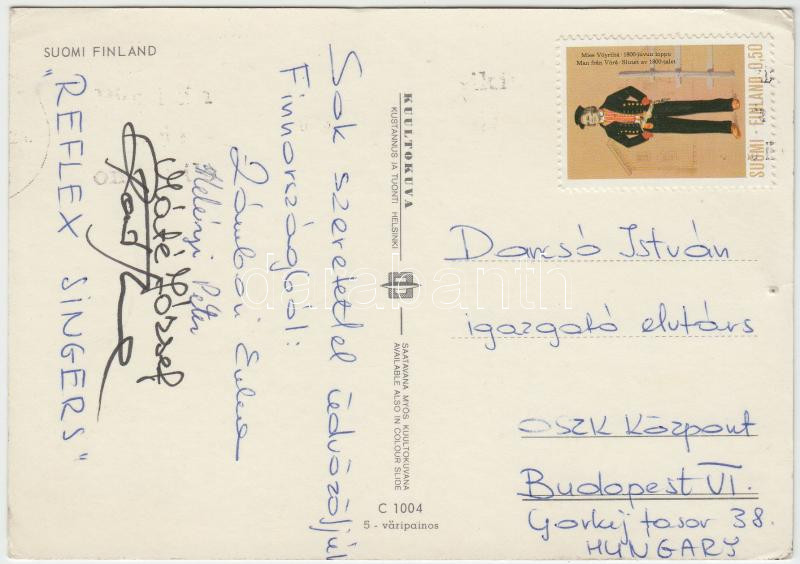 SUOMI FINLAND
Sok szeretettel üdvözöljük
Finnországból:
Zámbori
Helényi Péter
Máté József
"REFLEX SINGERS"
KUULTOKUVA
KUSTANNUS JA TUONTI HELSINKI
SAATAVANA MYÖS KUULTOKUVANA
AVAILABLE ALSO IN COLOUR SLIDE
C 1004
5 - väripainos
Mies Vöyriltä · 1800-luvun loppu
Man från Vörå · Slutet av 1800-talet
SUOMI - FINLAND 0,50
Darcsó István
igazgató elvtárs
OSZK Központ
Budapest VI.
Gorkij fasor 38.
HUNGARY
darabanth